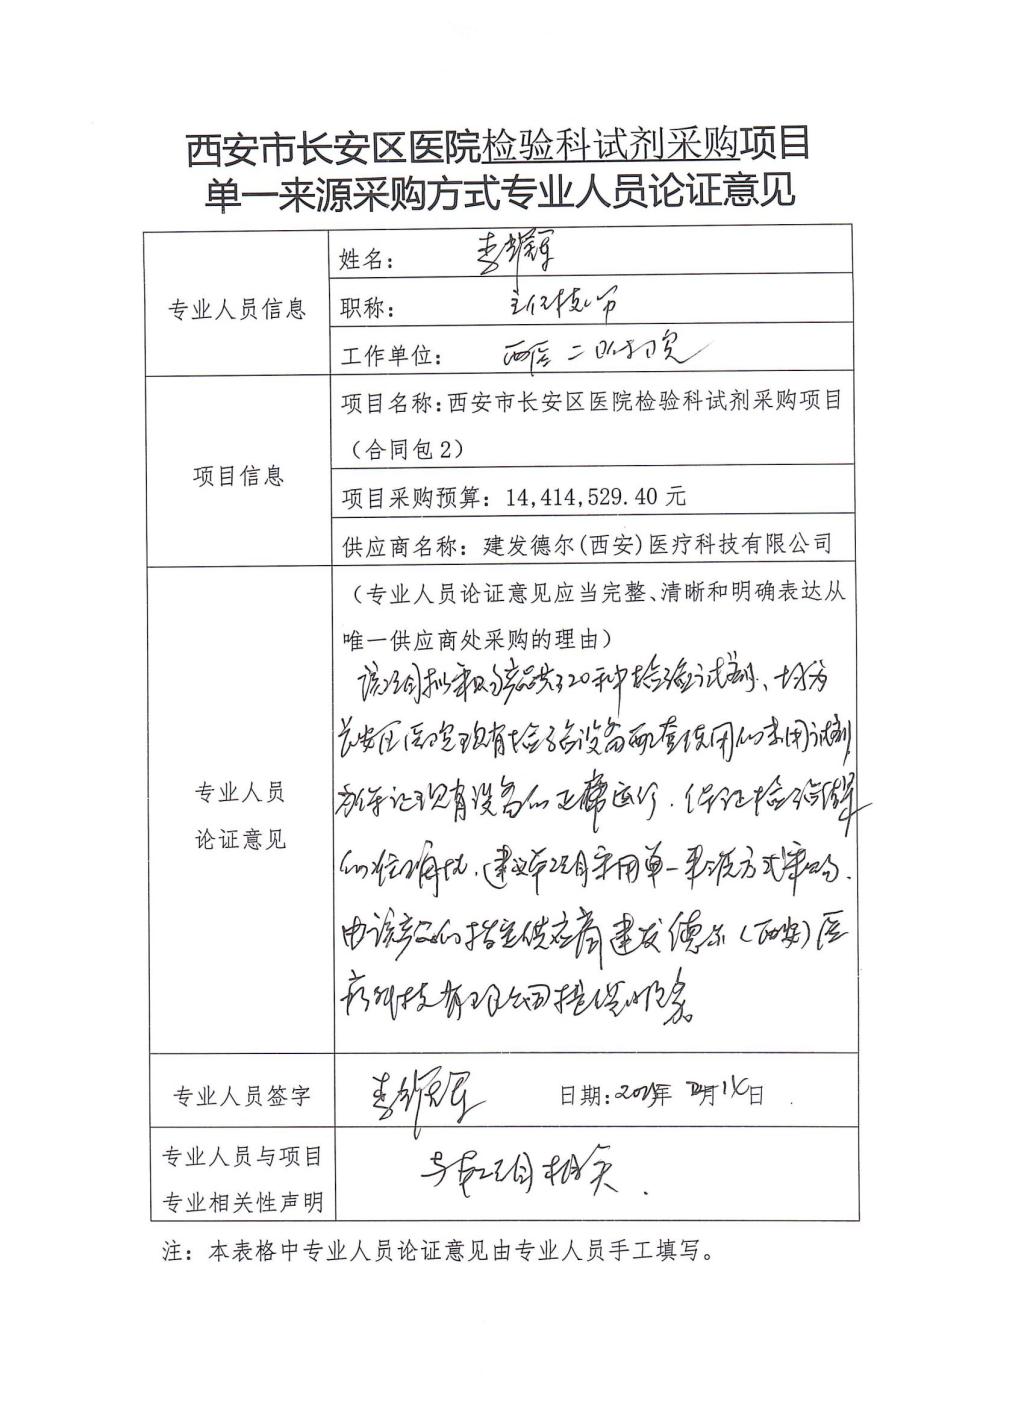 西安市长安区医院检验科试剂采购项目
单一来源采购方式专业人员论证意见
专业人员信息
姓名：李
职称：主任技师
工作单位：西医二附院
项目信息
项目名称:西安市长安区医院检验科试剂采购项目
（合同包 2）
项目采购预算：14,414,529.40 元
供应商名称：建发德尔(西安)医疗科技有限公司
专业人员
论证意见
（专业人员论证意见应当完整、清晰和明确表达从
唯一供应商处采购的理由）
该项目拟采购产品共320种检验试剂、均为
长安区医院现有检验设备配套使用的专用试剂
为保证现有设备的正常运行，保证检验结果
的准确性，建议本项目采用单一来源方式采购，
由该产品的指定供应商建发德尔（西安）医
疗科技有限公司提供服务
专业人员签字
李
日期: 年 月 日
专业人员与项目
专业相关性声明
与本项目相关.
注：本表格中专业人员论证意见由专业人员手工填写。